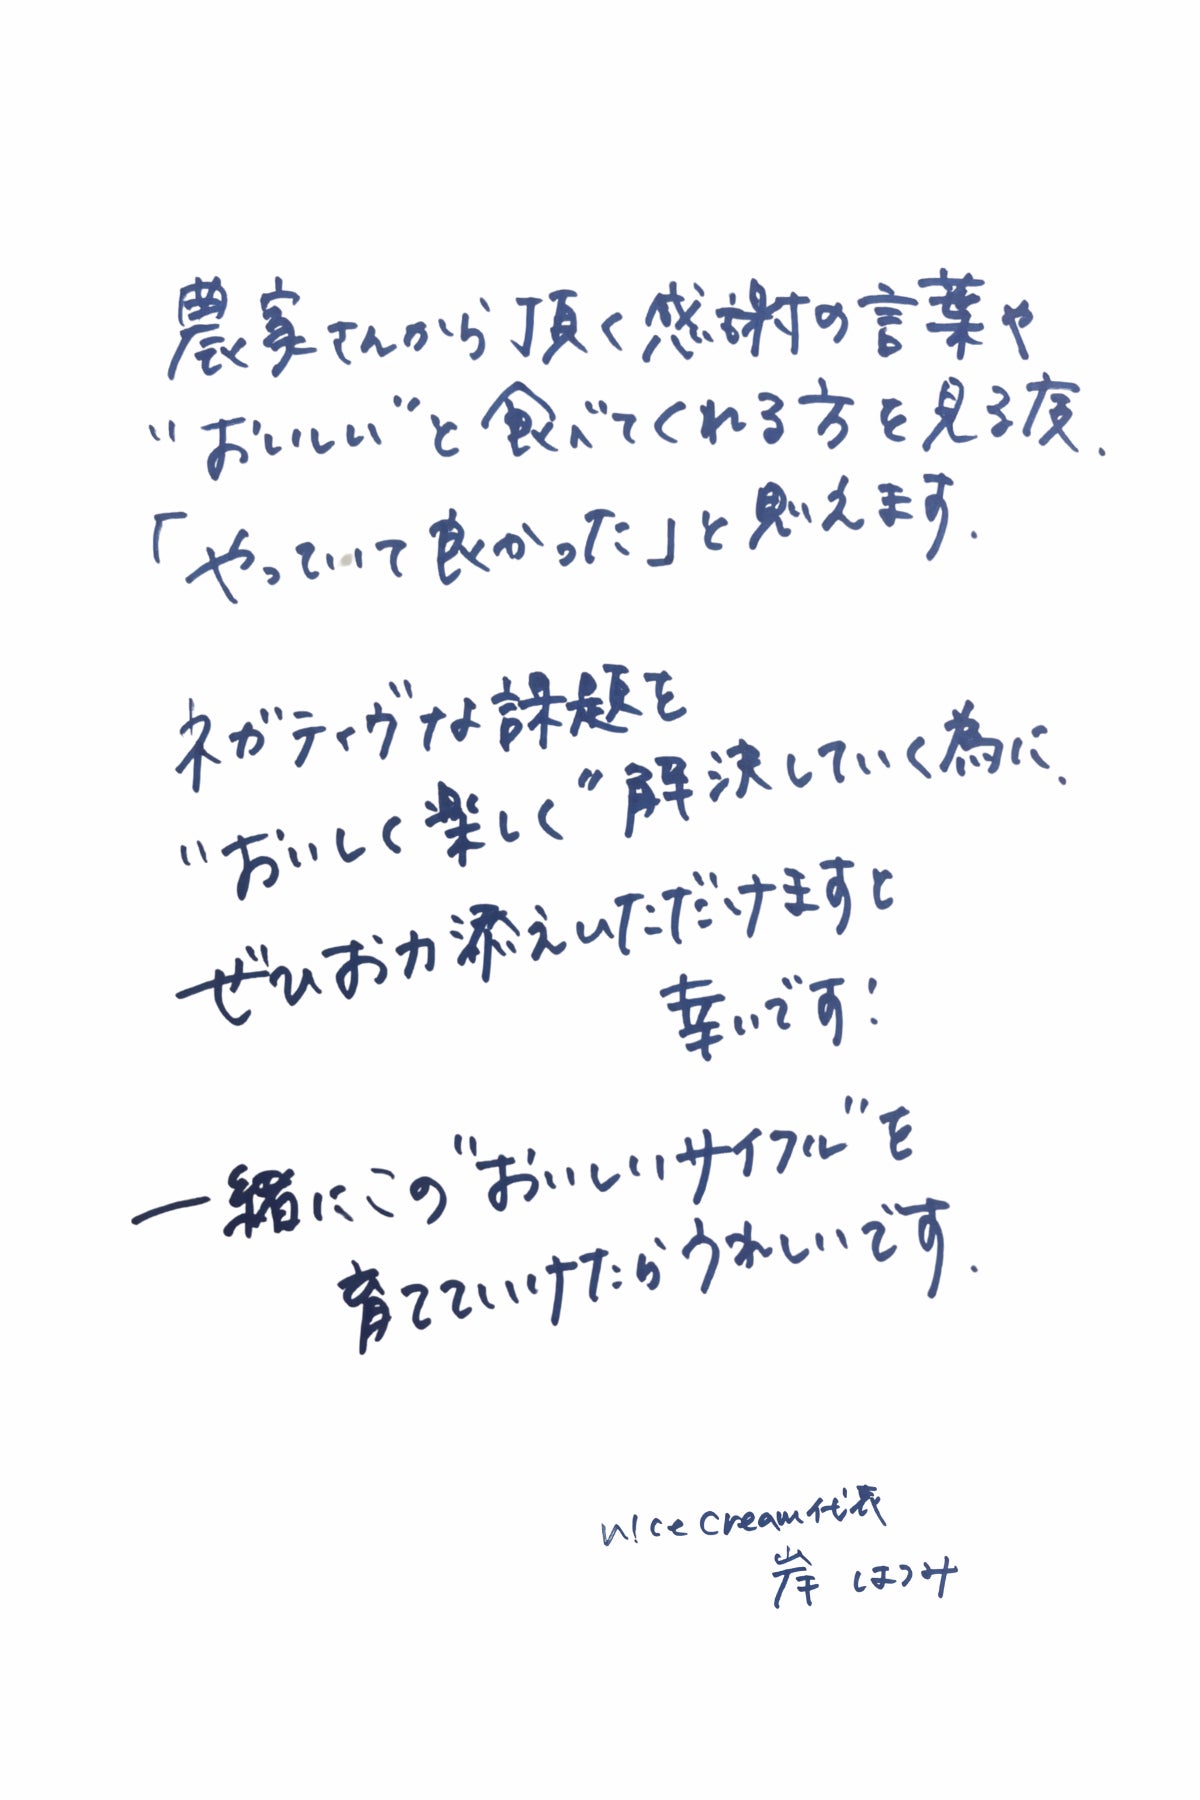 農家さんから頂く感謝の言葉や
"おいしい"と食べてくれる方を見る度.
「やっていて良かった」と思えます.
ネガティヴな課題を
"おいしく楽しく"解決していく為に.
ぜひお力添えいただけますと
幸いです!
一緒にこの"おいしいサイクル"を
育てていけたらうれしいです.
n!ce cream代表
岸 はつみ